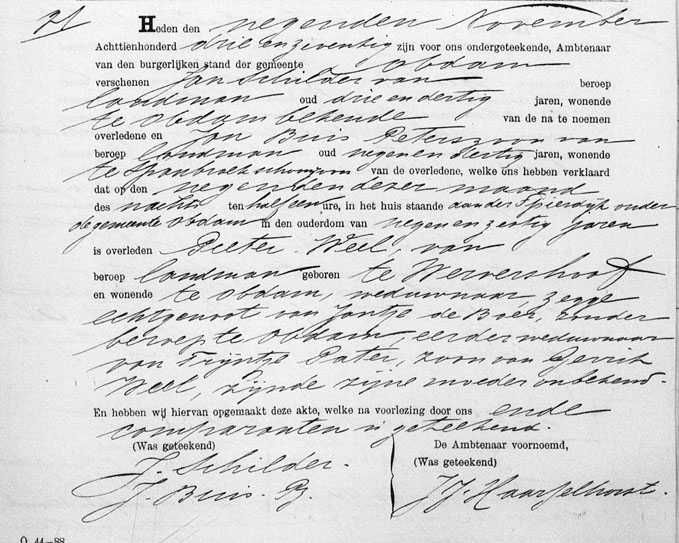 21
Heden den negenden November
Achttienhonderd drie en zeventig zijn voor ons ondergeteekende, Ambtenaar
van den burgerlijken stand der gemeente Obdam
verschenen Jan Schilder van beroep
landman oud drie en dertig jaren, wonende
te Obdam bekende van de na te noemen
overledene en Jan Buis Peterszoon van
beroep landman oud negen en dertig jaren, wonende
te Spanbroek schoonzoon van de overledene, welke ons hebben verklaard
dat op den negenden dezer maand
des nachts ten half een ure, in het huis staande aan de Spierdijk onder
de gemeente Obdam in den ouderdom van negen en zestig jaren
is overleden Pieter Weel, van
beroep landman geboren te Wervershoof
en wonende te Obdam, weduwnaar, zegge
echtgenoot van Jantje de Boer, zonder
beroep te Obdam, eerder weduwnaar
van Trijntje Pater, zoon van Gerrit
Weel, zijnde zijne moeder onbekend.
En hebben wij hiervan opgemaakt deze akte, welke na voorlezing door ons en de
comparanten is geteekend.
(Was geteekend)
J. Schilder.
J. Buis. Pz.
De Ambtenaar voornoemd,
(Was geteekend)
O 11-88